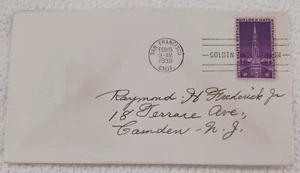 SAN FRANCISCO
9-AM
1939
CALIF.
GOLDEN GATE
GOLDEN
Raymond H Frederick Jr
18 Terrace Ave,
Camden - N. J.